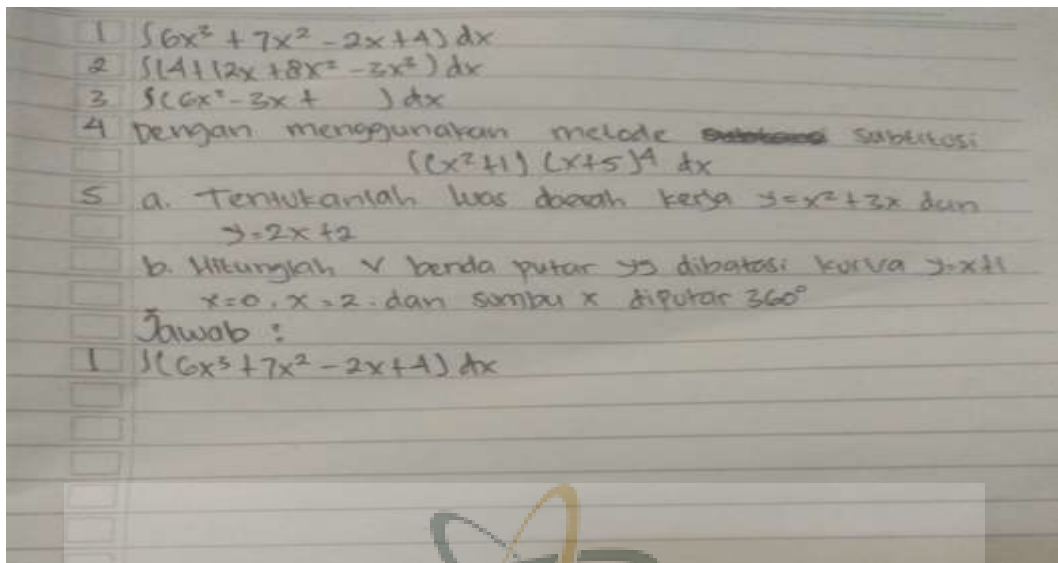 1 ∫6x³ + 7x² - 2x + 4) dx
2 ∫(4+12x + 8x² - 3x³) dx
3 ∫(6x² - 3x + ) dx
4 Dengan menggunakan metode subtitusi
((x²+1) (x+5)⁴ dx
5 a. Tentukanlah luas daerah kerja y=x²+3x dan
y=2x+2
b. Hitunglah V benda putar yg dibatasi kurva y=x+1
x=0, x=2. dan sumbu x diputar 360°
Jawab :
1 ∫(6x³ + 7x² - 2x + 4) dx